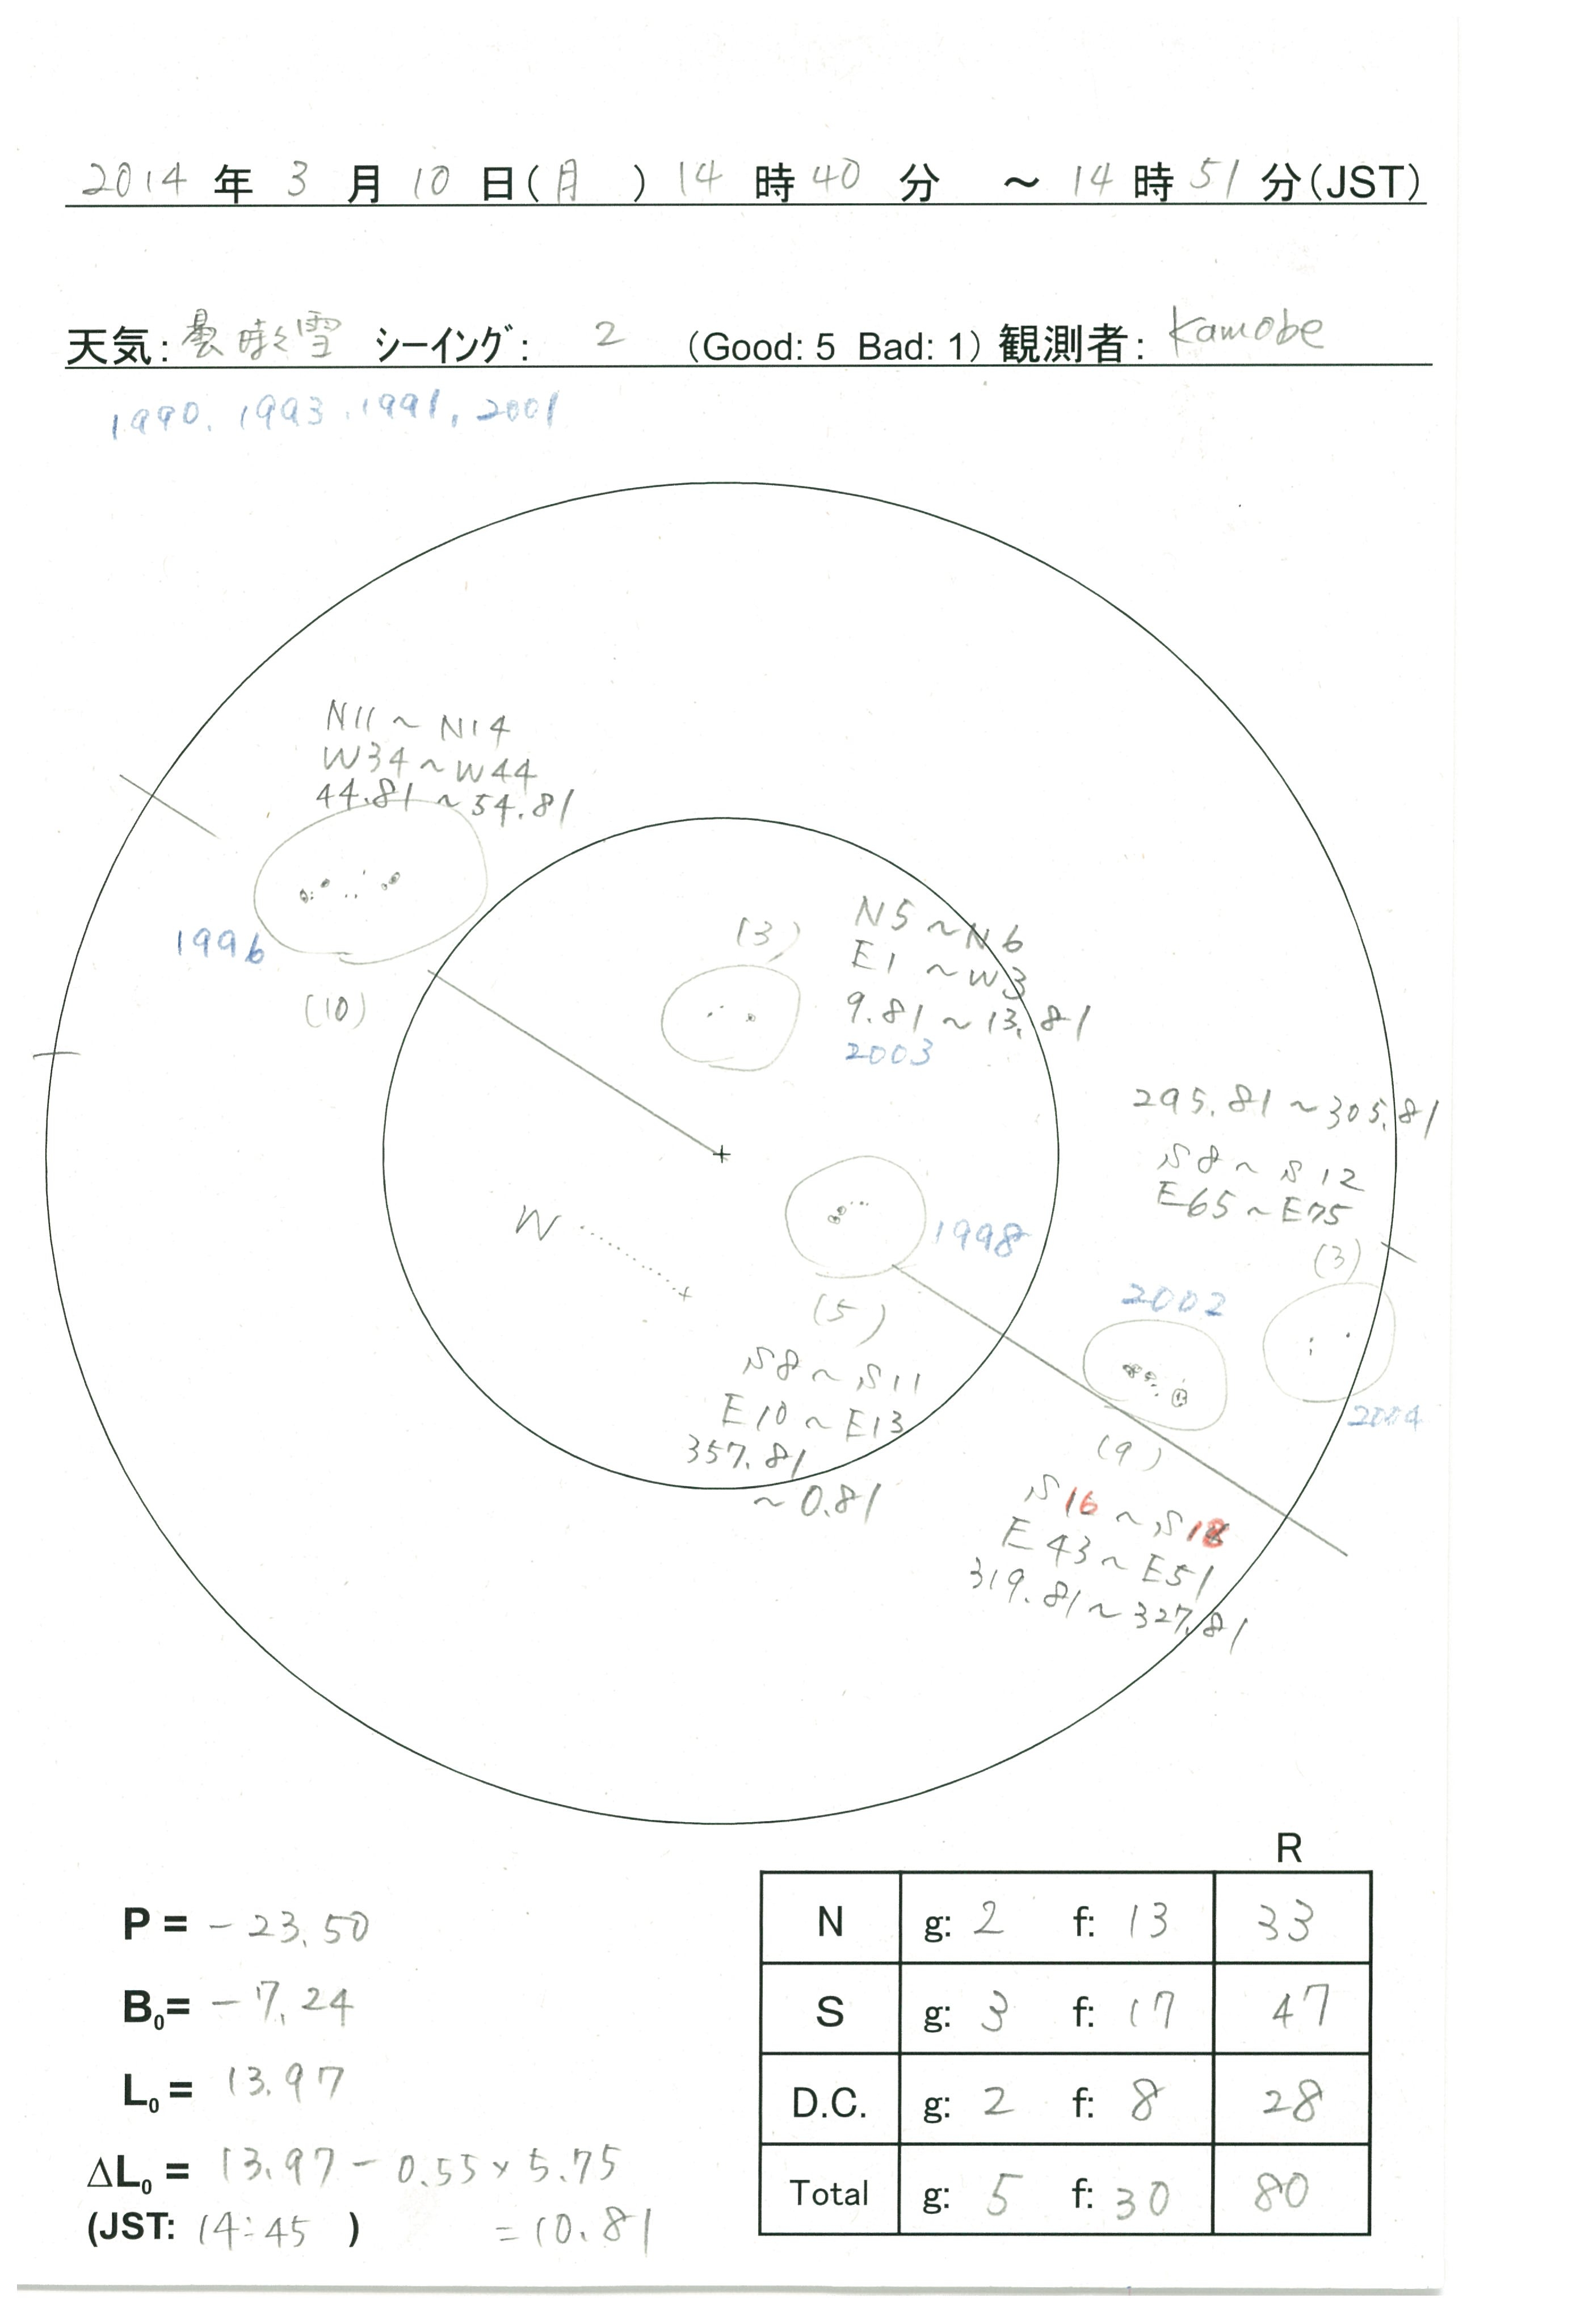 2014 年 3 月 10 日(月 ) 14 時 40 分 ～ 14 時 51 分(JST)
天気: 曇時々雪 シーイング: 2 (Good: 5 Bad: 1) 観測者: Kamobe
1990. 1993. 1991, 2001
N11～N14
W34～W44
44.81～54.81
1996
(10)
(3)
N5～N6
E1～W3
9.81～13.81
2003
295.81～305.81
S8～S12
E65～E75
(3)
2004
W
1998
(5)
S8～S11
E10～E13
357.81
～0.81
2002
(9)
S16～S18
E43～E51
319.81～327.81
P = -23.50
B0= -7.24
L0= 13.97
ΔL0= 13.97-0.55×5.75
(JST: 14:45 ) =10.81
R
N g: 2 f: 13 33
S g: 3 f: 17 47
D.C. g: 2 f: 8 28
Total g: 5 f: 30 80